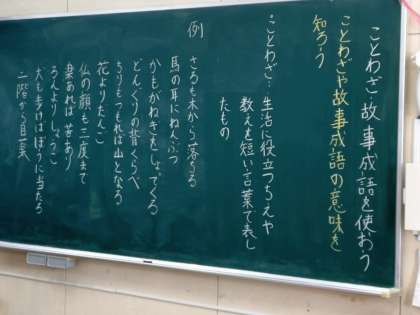 ことわざ 故事成語を使おう
ことわざや故事成語の意味を
知ろう
ことわざ… 生活に役立つちえや
教えを短い言葉で表し
たもの
例
さるも木から落ちる
馬の耳にねんぶつ
かもがねぎをしょってくる
どんぐりの背くらべ
ちりもつもれば山となる
花よりだんご
仏の顔も三度まで
楽あれば苦あり
ろんよりしょうこ
犬も歩けばぼうに当たる
二階から目薬